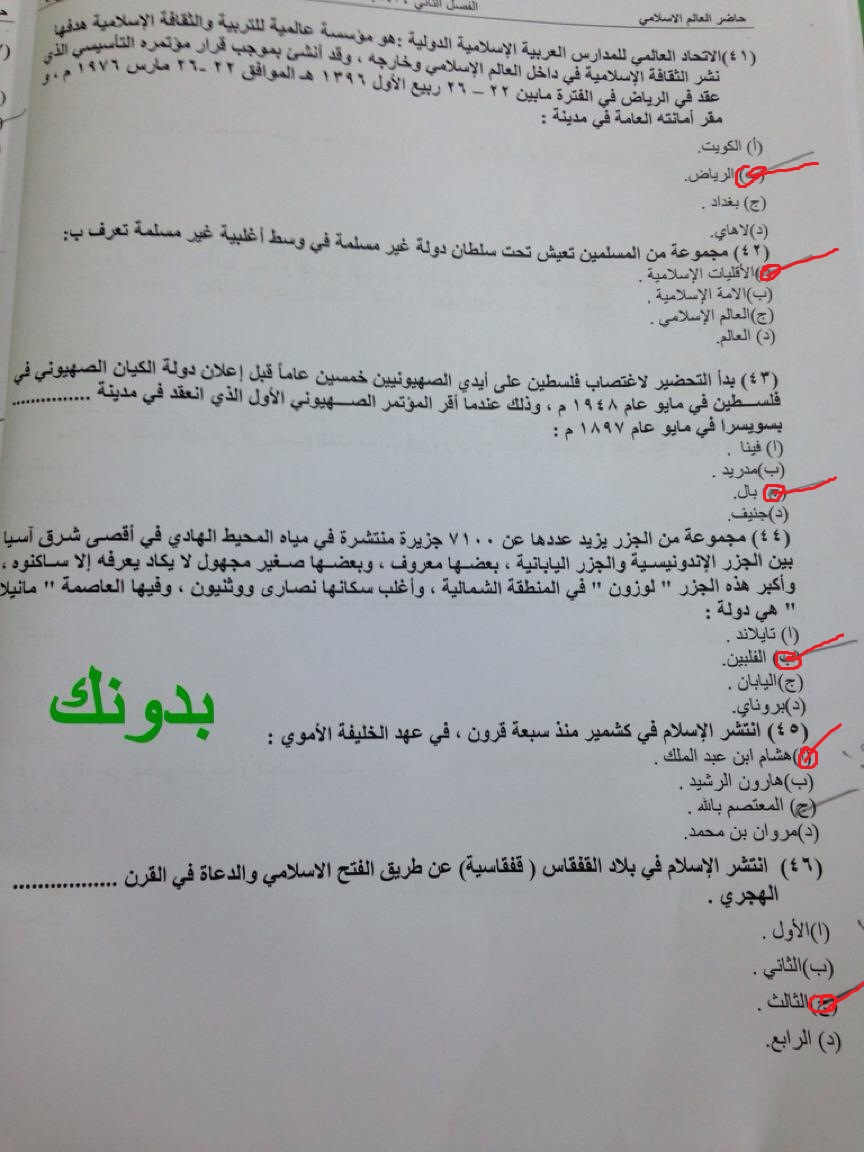 حاضر العالم الاسلامي
الفصل الثاني
(٤١)الاتحاد العالمي للمدارس العربية الإسلامية الدولية :هو مؤسسة عالمية للتربية والثقافة الإسلامية هدفها
نشر الثقافة الإسلامية في داخل العالم الإسلامي وخارجه ، وقد أنشئ بموجب قرار مؤتمره التأسيسي الذي
عقد في الرياض في الفترة مابين ٢٢ – ٢٦ ربيع الأول ١٣٩٦ هـ الموافق ٢٢ -٢٦ مارس ١٩٧٦ م ، و
مقر أمانته العامة في مدينة :
(أ) الكويت.
(ب) الرياض.
(ج) بغداد .
(د)لاهاي.
(٤٢) مجموعة من المسلمين تعيش تحت سلطان دولة غير مسلمة في وسط أغلبية غير مسلمة تعرف ب:
الأقليات الإسلامية .
(ب)الامة الإسلامية .
(ج)العالم الإسلامي .
(د) العالم.
(٤٣) بدأ التحضير لاغتصاب فلسطين على أيدي الصهيونيين خمسين عاماً قبل إعلان دولة الكيان الصهيوني في
فلسـطين في مايو عام ١٩٤٨ م ، وذلك عندما أقر المؤتمر الصـهيوني الأول الذي انعقد في مدينة ...............
بسويسرا في مايو عام ١٨٩٧ م :
(ا) فينا .
(ب)مدريد .
(ج) بال.
(د)جنيف.
(٤٤) مجموعة من الجزر يزيد عددها عن ٧١٠٠ جزيرة منتشرة في مياه المحيط الهادي في أقصى شرق آسيا
بين الجزر الإندونيسـية والجزر اليابانية ، بعضـها معروف ، وبعضـها صـغير مجهول لا يكاد يعرفه إلا سـاكنوه ،
وأكبر هذه الجزر " لوزون " في المنطقة الشمالية ، وأغلب سكانها نصارى ووثنيون ، وفيها العاصمة " مانيلا
" هي دولة :
(ا) تايلاند .
(ب) الفلبين.
(ج)اليابان .
(د)بروناي.
بدونك
(٤٥) انتشر الإسلام في كشمير منذ سبعة قرون ، في عهد الخليفة الأموي :
(ا)هشام ابن عبد الملك .
(ب)هارون الرشيد .
(ج) المعتصم بالله .
(د)مروان بن محمد.
(٤٦) انتشر الإسلام في بلاد القفقاس ( قفقاسية) عن طريق الفتح الاسلامي والدعاة في القرن .................
الهجري .
(ا)الأول .
(ب)الثاني .
(ج)الثالث .
(د) الرابع.